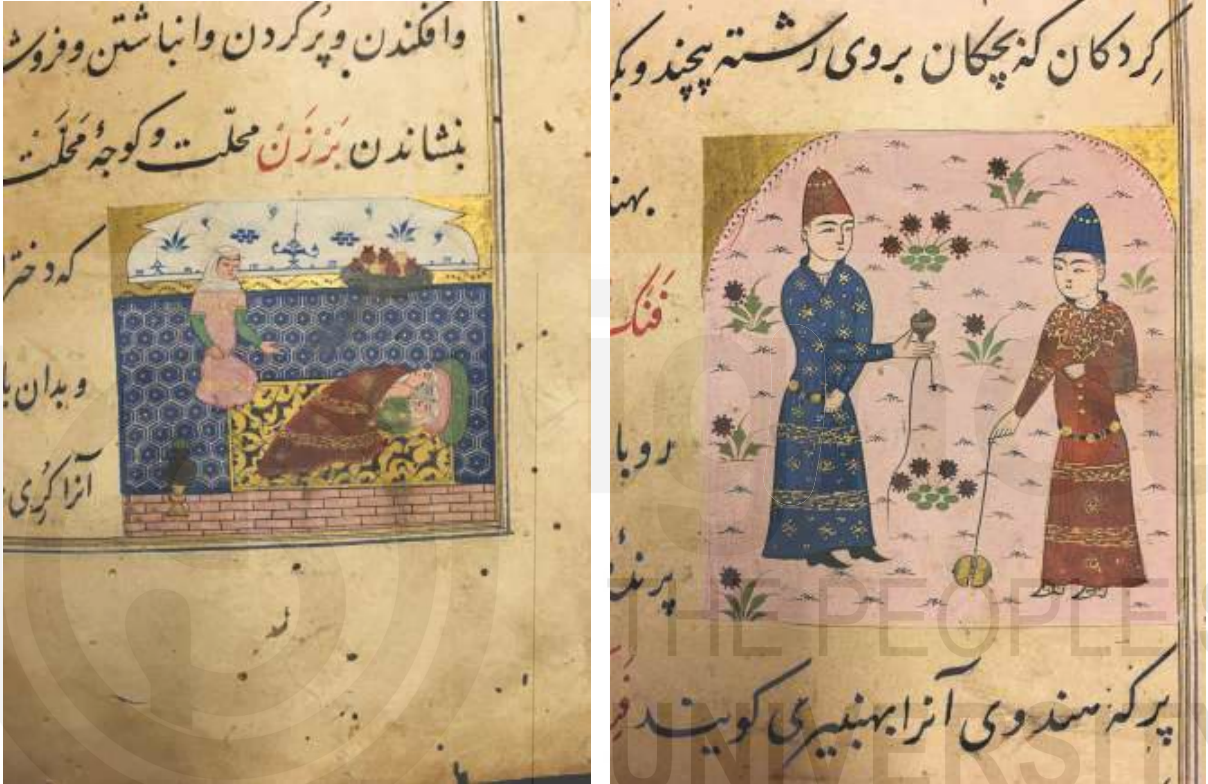 وافکندن وپرکردن وانباشتن وفروش
بنشاندن بَرْزَنْ محلّت وکوچهٔ مَحلّت
که دختر
وبدان با
آنرا کُری
کردکان که بچکان بروی رشته پیچند وبک
بهند
فنک
روبا
پرند
پرکه هندوی آنرا بهنبیری کویند
THE PEOPLE'S
UNIVERSITY